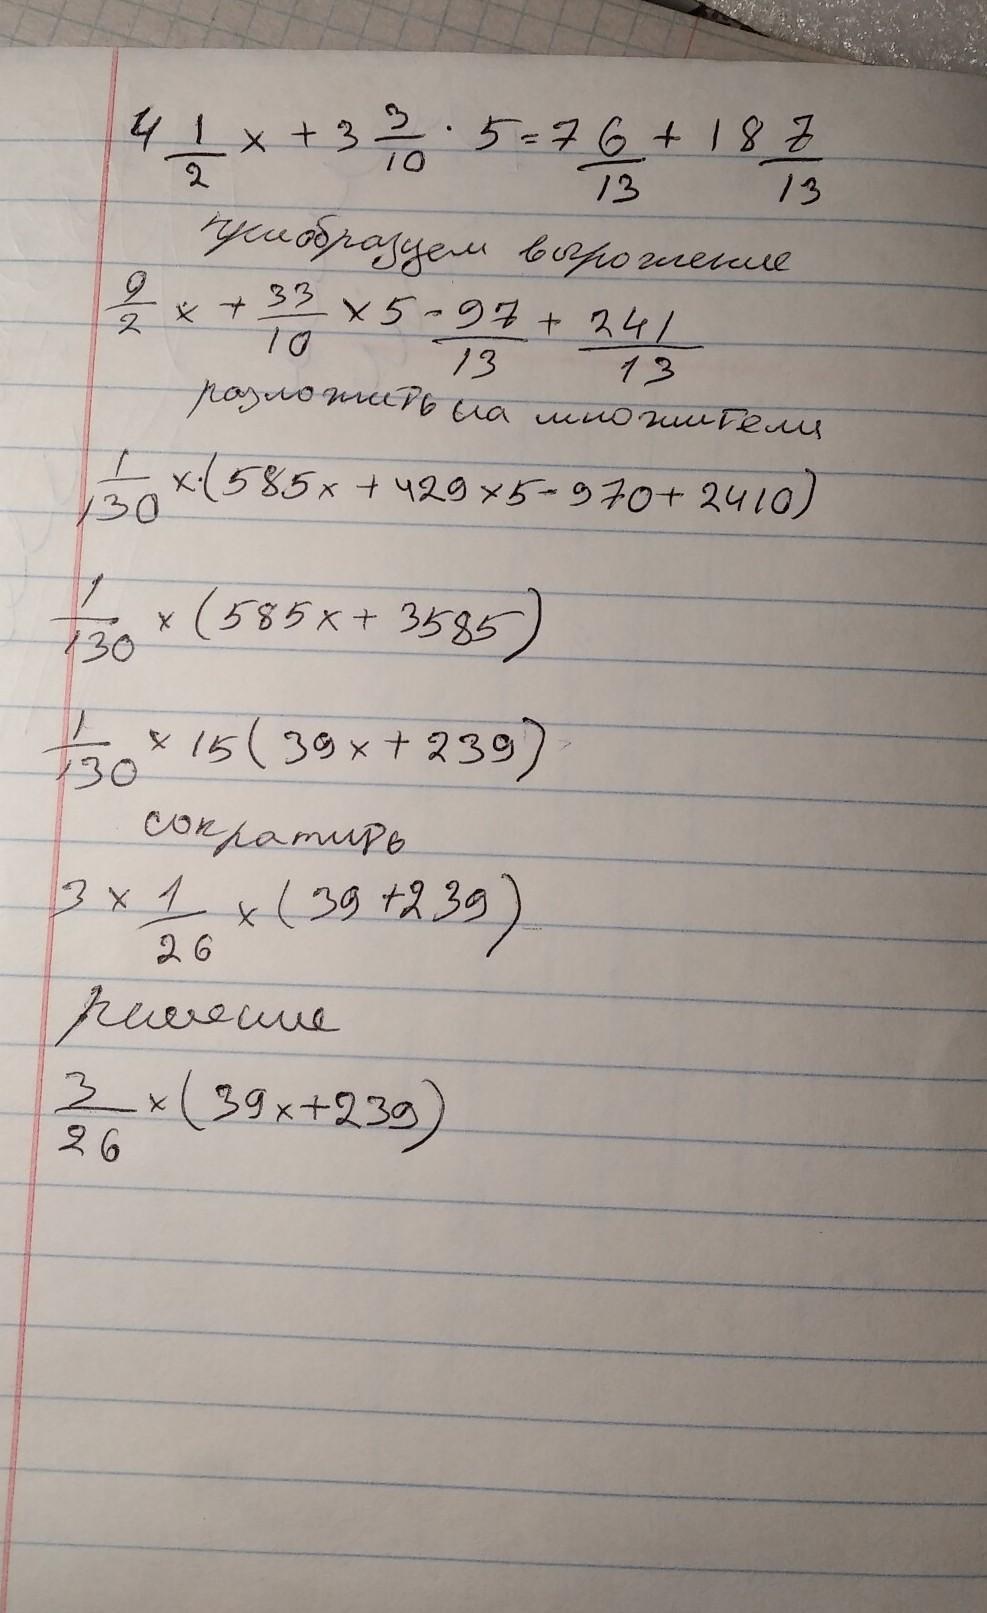 4 1/2 x + 3 3/10 · 5 = 7 6/13 + 18 7/13
приобразуем вырожение
9/2 x + 33/10 × 5 - 97/13 + 241/13
разложить на множители
1/130 x·(585x + 429 × 5 - 970 + 2410)
1/130 × (585x + 3585)
1/130 × 15(39x + 239)
сократить
3 × 1/26 × (39 + 239)
решение
3/26 × (39x + 239)